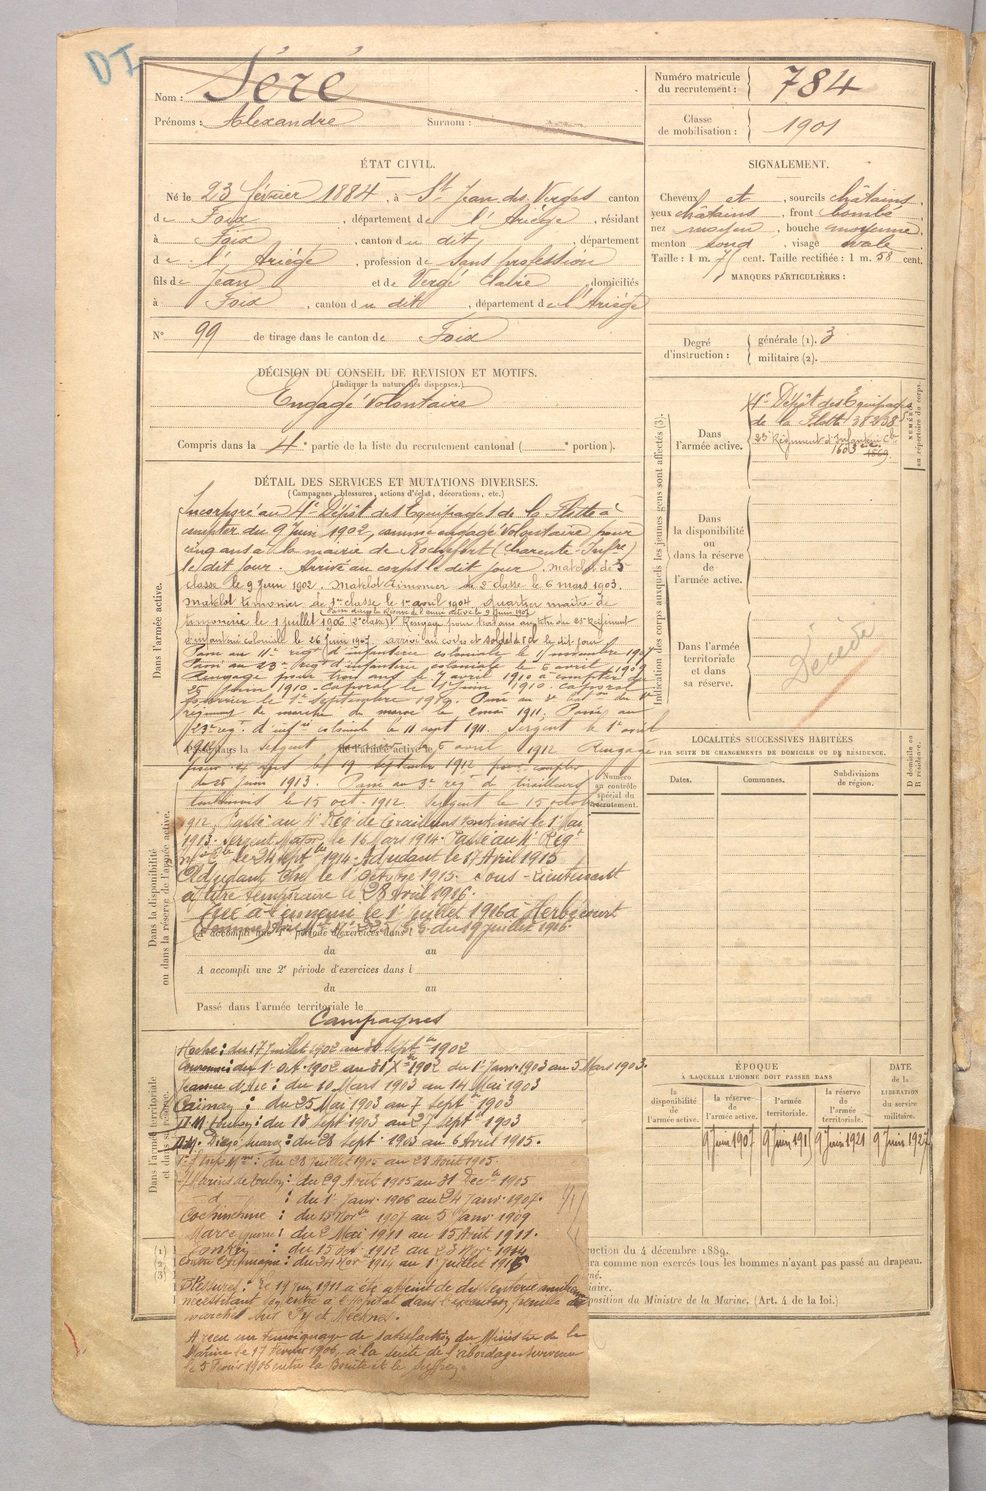 DI
Nom : Séré
Prénoms : Alexandre Surnom :
Numéro matricule du recrutement : 784
Classe de mobilisation : 1901
ÉTAT CIVIL.
Né le 23 février 1884, à St Jean de Verges canton
de Foix, département de l'Ariège, résidant
à Foix, canton du dit, département
de l'Ariège, profession de sans profession
fils de Jean et de Vergé Claire domiciliés
à Foix, canton du dit, département de l'Ariège
N° 99 de tirage dans le canton de Foix
SIGNALEMENT.
Cheveux et, sourcils châtains,
yeux châtains, front bombé
nez moyen, bouche moyenne,
menton rond, visage ovale
Taille : 1 m. 71 cent. Taille rectifiée : 1 m. 58 cent.
MARQUES PARTICULIÈRES :
Degré d'instruction : générale (1). 3
militaire (2).
DÉCISION DU CONSEIL DE REVISION ET MOTIFS.
(Indiquer la nature des dispenses.)
Engagé Volontaire
Compris dans la 4e partie de la liste du recrutement cantonal ( e portion).
DÉTAIL DES SERVICES ET MUTATIONS DIVERSES.
(Campagnes, blessures, actions d'éclat, décorations, etc.)
Dans l'armée active.
Incorporé au 4e Dépôt des Equipages de la Flotte à
compter du 9 Juin 1902, comme engagé Volontaire pour
cinq ans à la mairie de Rochefort (Charente-Infre)
le dit jour. Arrivé au corps le dit jour. Matelot de 3e
classe le 9 Juin 1902. Matelot timonier de 2e classe le 6 mars 1903.
Matelot timonier de 1re classe le 1er avril 1904. Quartier maître de
timonerie le 1 juillet 1906 (2e classe)
d'infanterie coloniale le 26 Juin 1907. arrivé au corps et soldat de 2e cl le dit jour
Passé au 11e regt d'infanterie coloniale le 11 novembre 1907
Passé au 23e regt d'infanterie coloniale le 6 avril 1909
Rengagé pour trois ans le 7 avril 1910 à compter du
25 Juin 1910. Caporal le 1 Juin 1910. Caporal
fourrier le 1er septembre 1910.
régiment de marche du maroc le 2 mai 1911. Passé au
23e reg. d'inf. coloniale le 11 aout 1911. Sergent le 1er avril
du 25 Juin 1913. Passé au 3e reg de tirailleurs
tonkinois le 15 oct. 1912. Sergent le 15 octobre
1912. Passé au 4e Reg de tirailleurs tonkinois le 1er Mai
1913. Sergent Major le 16 Mars 1914. Passé au 4e Regt
le 24 septbre 1914. Adjudant le 17 Avril 1915
Adjudant Chef le 1er Octobre 1915. Sous-Lieutenant
à titre temporaire le 28 Avril 1916.
Tué à l'ennemi le 1er Juillet 1916 à Herbécourt
(Somme) du 9 Juillet 1916.
Dans la disponibilité ou dans la réserve de l'armée active.
Numéro au contrôle spécial du recrutement.
A accompli une 1re période d'exercices dans l
du au
A accompli une 2e période d'exercices dans l
du au
Passé dans l'armée territoriale le
Dans l'armée territoriale et dans sa réserve.
Campagnes
Hoche : du 17 Juillet 1902 au 30 Septbre 1902
du 1er Oct. 1902 au 31 Xbre 1902 du 1er Janv. 1903 au 5 Mars 1903.
Jeanne d'Arc : du 10 Mars 1903 au 14 Mai 1903
Caïman : du 25 Mai 1903 au 7 septbre 1903
du 18 septbre 1903 au 27 septbre 1903
Diego Suarez : du 28 septbre 1903 au 6 Avril 1905.
du 23 Juillet 1905 au 28 Août 1905.
du 29 Août 1905 au 31 Decbre 1905
d° : du 1er Janv 1906 au 24 Janv. 1907.
Cochinchine : du 15 Novbre 1907 au 5 Janv. 1909
Maroc guerre : du 2 Mai 1911 au 15 Août 1911.
Tonkin : du 15 Oct 1912 au 23 Nov 1914
Contre l'Allemagne : du 24 Nov 1914 au 1er Juillet 1916
Blessures : le 19 Juin 1911 a été atteint de dysenterie amibienne
nécessitant son entrée à l'hôpital dans l'exécution pénible des
marches sur Fez et Meknès.
A reçu un témoignage de satisfaction du Ministre de la
Marine le 17 Février 1906, à la suite de l'abordage survenu
le 5 Février 1906 entre la Bonite et le Suffren.
Indication des corps auxquels les jeunes gens sont affectés (3).
NUMÉROS au répertoire du corps.
Dans l'armée active.
4e Dépôt des Equipages
de la Flotte 38238-5
23e Régiment d'Infanterie Cle
1603
Dans la disponibilité ou dans la réserve de l'armée active.
Dans l'armée territoriale et dans sa réserve.
Décédé
LOCALITÉS SUCCESSIVES HABITÉES
PAR SUITE DE CHANGEMENTS DE DOMICILE OU DE RÉSIDENCE.
Dates. Communes. Subdivisions de région. D domicile ou R résidence.
ÉPOQUE
A LAQUELLE L'HOMME DOIT PASSER DANS
DATE de la LIBÉRATION du service militaire.
la disponibilité de l'armée active. la réserve de l'armée active. l'armée territoriale. la réserve de l'armée territoriale.
9 Juin 1907 9 Juin 1915 9 Juin 1921 9 Juin 1927
(1)
(2)
(3)
uction du 4 décembre 1889.
ra comme non exercés tous les hommes n'ayant pas passé au drapeau.
né.
iaire.
position du Ministre de la Marine. (Art. 4 de la loi.)